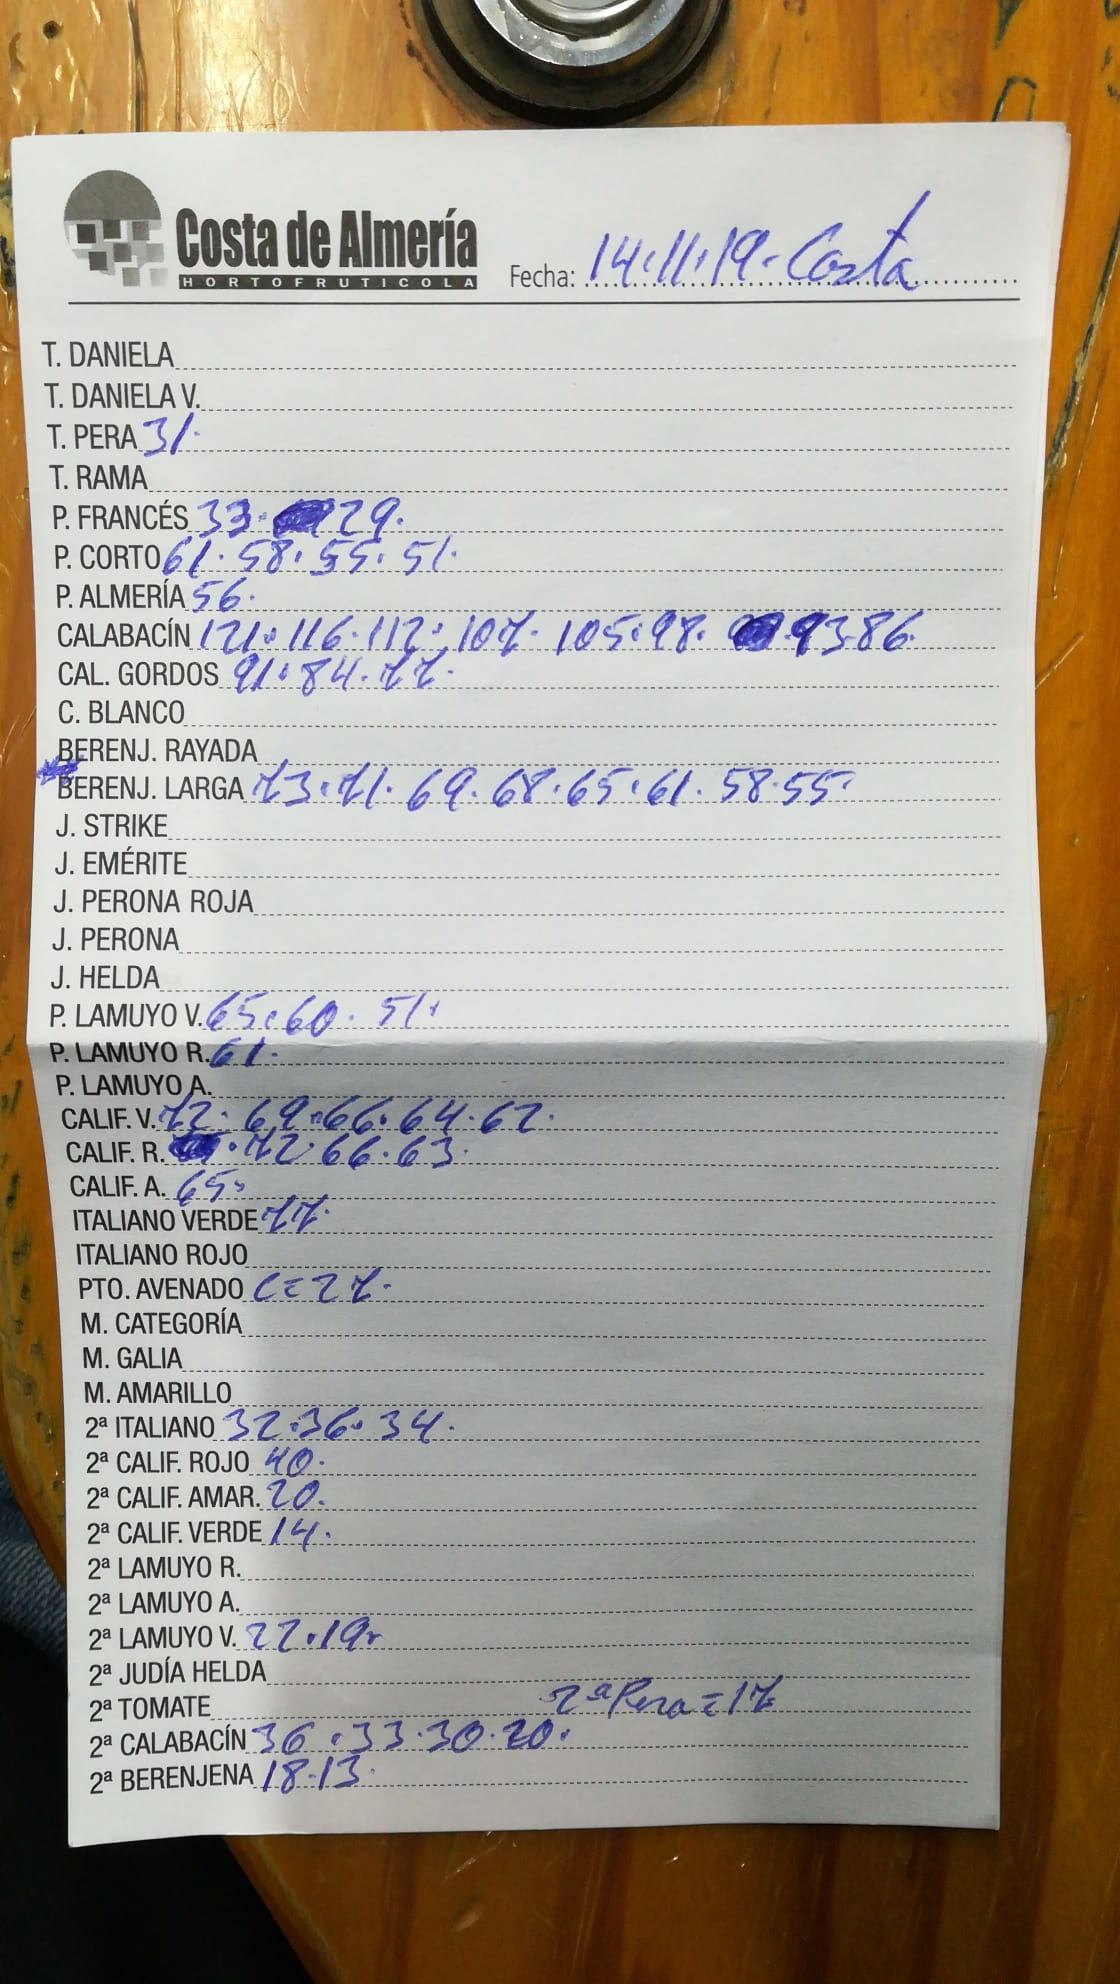 Costa de Almería
HORTOFRUTICOLA
Fecha: 14.11.19. Costa
T. DANIELA
T. DANIELA V.
T. PERA 31.
T. RAMA
P. FRANCÉS 33. 29.
P. CORTO 61. 58. 55. 51.
P. ALMERÍA 56.
CALABACÍN 121. 116. 112. 107. 105. 98. 93.86.
CAL. GORDOS 91. 84. 77.
C. BLANCO
BERENJ. RAYADA
BERENJ. LARGA 73. 71. 69. 68. 65. 61. 58. 55.
J. STRIKE
J. EMÉRITE
J. PERONA ROJA
J. PERONA
J. HELDA
P. LAMUYO V. 65. 60. 51.
P. LAMUYO R. 61.
P. LAMUYO A.
CALIF. V. 72. 69. 66. 64. 62.
CALIF. R. . 72. 66. 63.
CALIF. A. 65.
ITALIANO VERDE 77.
ITALIANO ROJO
PTO. AVENADO C = 27.
M. CATEGORÍA
M. GALIA
M. AMARILLO
2ª ITALIANO 32. 36. 34.
2ª CALIF. ROJO 40.
2ª CALIF. AMAR. 20.
2ª CALIF. VERDE 14.
2ª LAMUYO R.
2ª LAMUYO A.
2ª LAMUYO V. 22. 19.
2ª JUDÍA HELDA
2ª TOMATE 2ª Pera = 17
2ª CALABACÍN 36. 33. 30. 20.
2ª BERENJENA 18. 13.